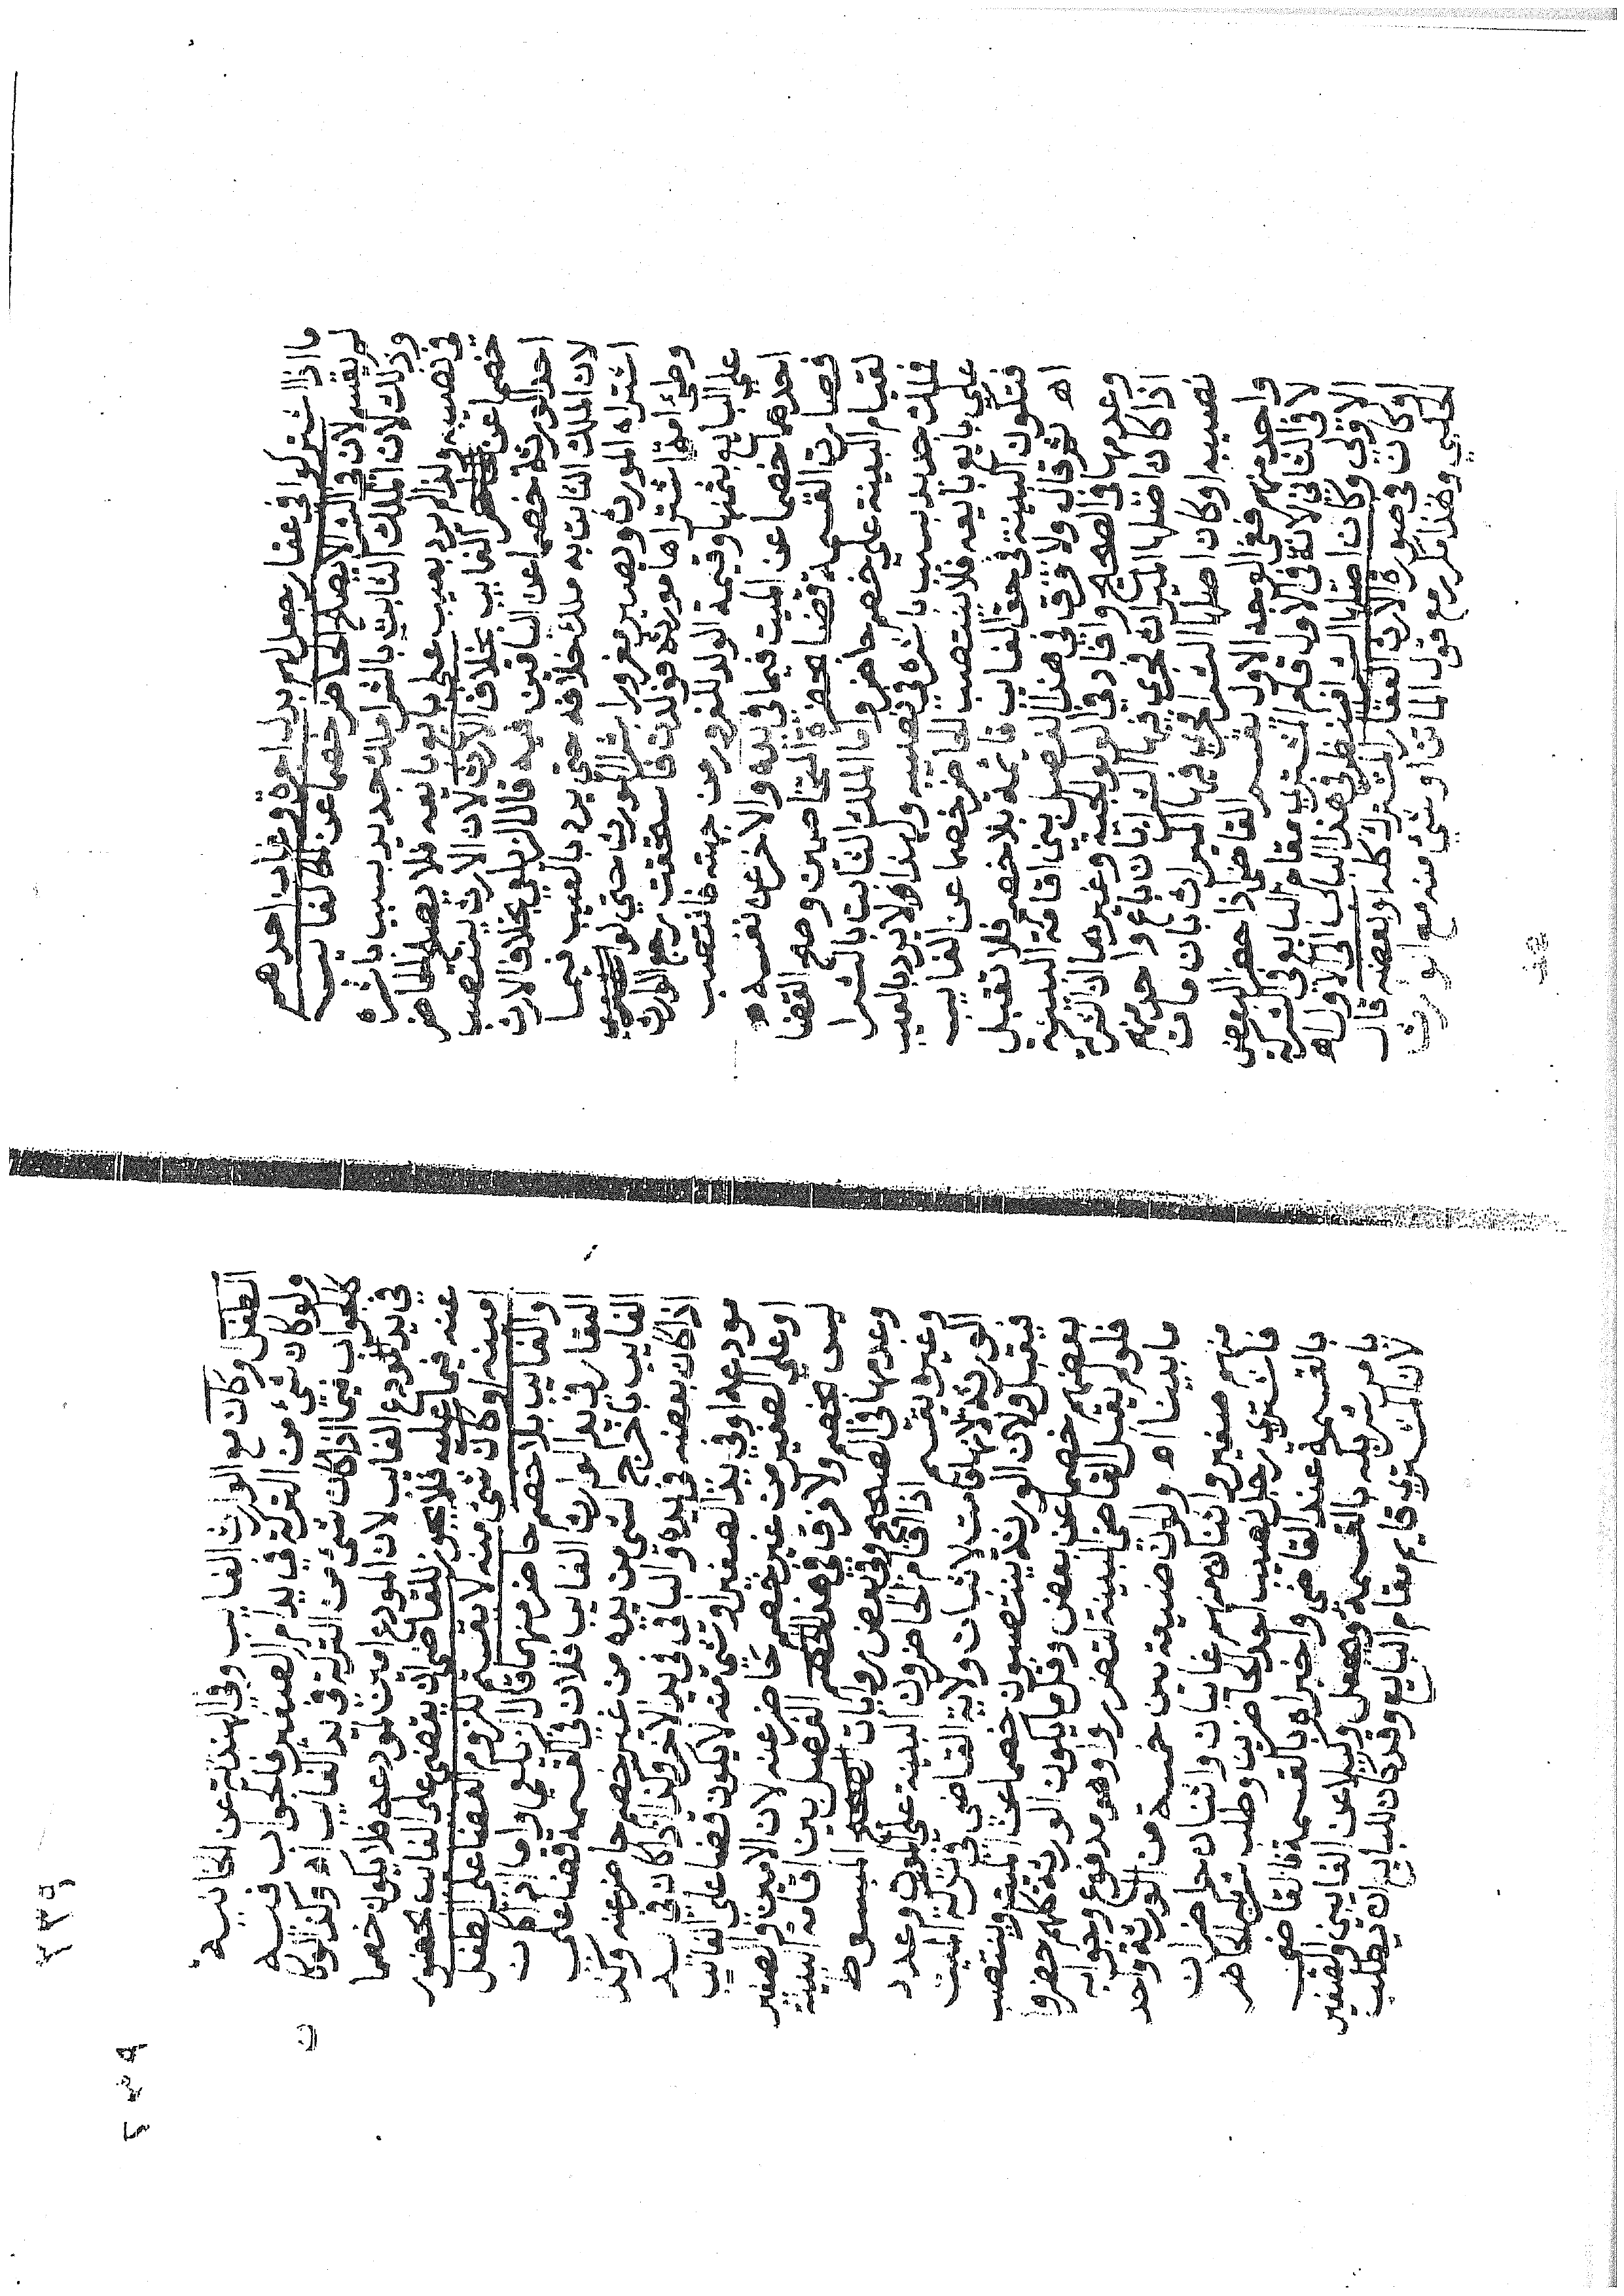 ما اذا اشتركوا في عقار جعل لهم بدل اجرة وغاب احدهم
لم يقسم لان في الشرا لا يصلح الحاضر خصما عن الغايب
وذلك لان الملك الثابت بالشرا ملك جديد بسبب باشره
في نصيبه ولذا لم يرد بعيب على بايع بايعه فلا يصلح الحاضر
خصما عن الغايب بخلاف الارث لان الارث ينتصب
احد الورثة خصما عن الباقين فيه قال الزيلعي بخلاف الارث
لان الملك الثابت به ملك خلافة حتى يرد بالعيب فيما
اشتراه المورث ويصير مغرورا بشرا المورث حتى لو
وطئ امة اشتراها مورثه فولدت فاستحقت رجع الوارث
على البايع بثمنها وقيمة الولد للغرور من جهته فانتصب
احدهما خصما عن الميت فيما في يده والاخر عن نفسه
فصارت القسمة قضا بحضرة المتخاصمين وصح القضا
لقيام البينة على خصم حاضر واما الملك الثابت بالشرا
فملك جديد بسبب باشره في نصيبه ولهذا لا يرد بالعيب
على بايع بايعه فلا ينتصب الحاضر خصما عن الغايب
فتكون البينة في حق الغايب قائمة بلا خصم فلا تقبل
اه ثم قال ولا فرق في هذا الفصل بين اقامة البينة
وعدمها في الصحيح وافاد في الولوالجية وغيرها ان الشركة
اذا كان اصلها الميراث فجري فيها الشرا بان باع واحد منهم
نصيبه او كان اصلها الشرا فجري فيها الميراث بان مات
واحد منهم ففي الوجه الاول يقسم القاضي اذا حضر البعض
لا في الثاني لانه في الاول قام المشتري مقام البايع في الشركة
الاولى وكان اصلها الشرا فينظر في هذا الباب الى الاول اه
او كان في صورة الارث العقار المشترك كله او بعضه قال
الحلبي وهذا مكرر مع قول الماتن او شي منه مع الوارث
٢٣٩
٢٣٩
الطفل وكان مع الوارث الغايب وفي الهندية عن الخانية
ولو كان شيء من التركة في يد ام الصغير فالجواب فيه
كالجواب فيما اذا كان شيء من التركة في يد الغايب اه وكذا لو كان
في يد مودع الغايب لان المودع امين لمودعه فلا يكون خصما
عنه فيما عليه فلا يجوز للقاضي ان يقضي على الغايب بحضور
امينه او كان شي منه لا يقسم للزوم القضا على الطفل
او الغايب بلا خصم حاضر عنهما قال الزيلعي واما اذا كان
العقار في يد الوارث الغايب فلان في القسمة قضا على
الغايب باخراج الشي من يده من غير خصم حاضر عنه وكذا
اذا كان بعضه في يده والباقي في يد الاخر وكذا اذا كان في يد
مودعه او في يد الصغير او شي منه لا يكون قضا على الغايب
او على الصغير من غير خصم حاضر عنه لان الامين والصغير
ليس بخصم ولا فرق في هذا الفصل بين اقامة البينة
وعدمها في الصحيح وفي بعض روايات المبسوط
وغيره يقسم اذا اقام الحاضرون البينة على الموت وعدد
الورثة لانها قامت لاثبات ولاية القاضي في تركة الميت
فيقبل ولان الورثة ينتصبون خصما عن الميت وينتصب
بعضهم خصما عن بعض وقل ما يكون الورثة كلهم حضروا
فلو لم يقبل القاضي البينة لتضرروا وهو مدفوع وجوابه
ما بينا اه ولو ان ضيعة بين خمسة من الورثة واحد
منهم صغير واثنان منهم غايبان واثنان حاضران
فاشترى رجل نصيب احد الحاضرين وطلب شريكه الحاضر
بالقسمة عند القاضي واخبراه بالقسمة فالقاضي
يامر شريكه بالقسمة ويجعل وكيلا عن الغايبين والصغير
لان المشتري قايم مقام البايع وقد كان للبايع ان يطلب